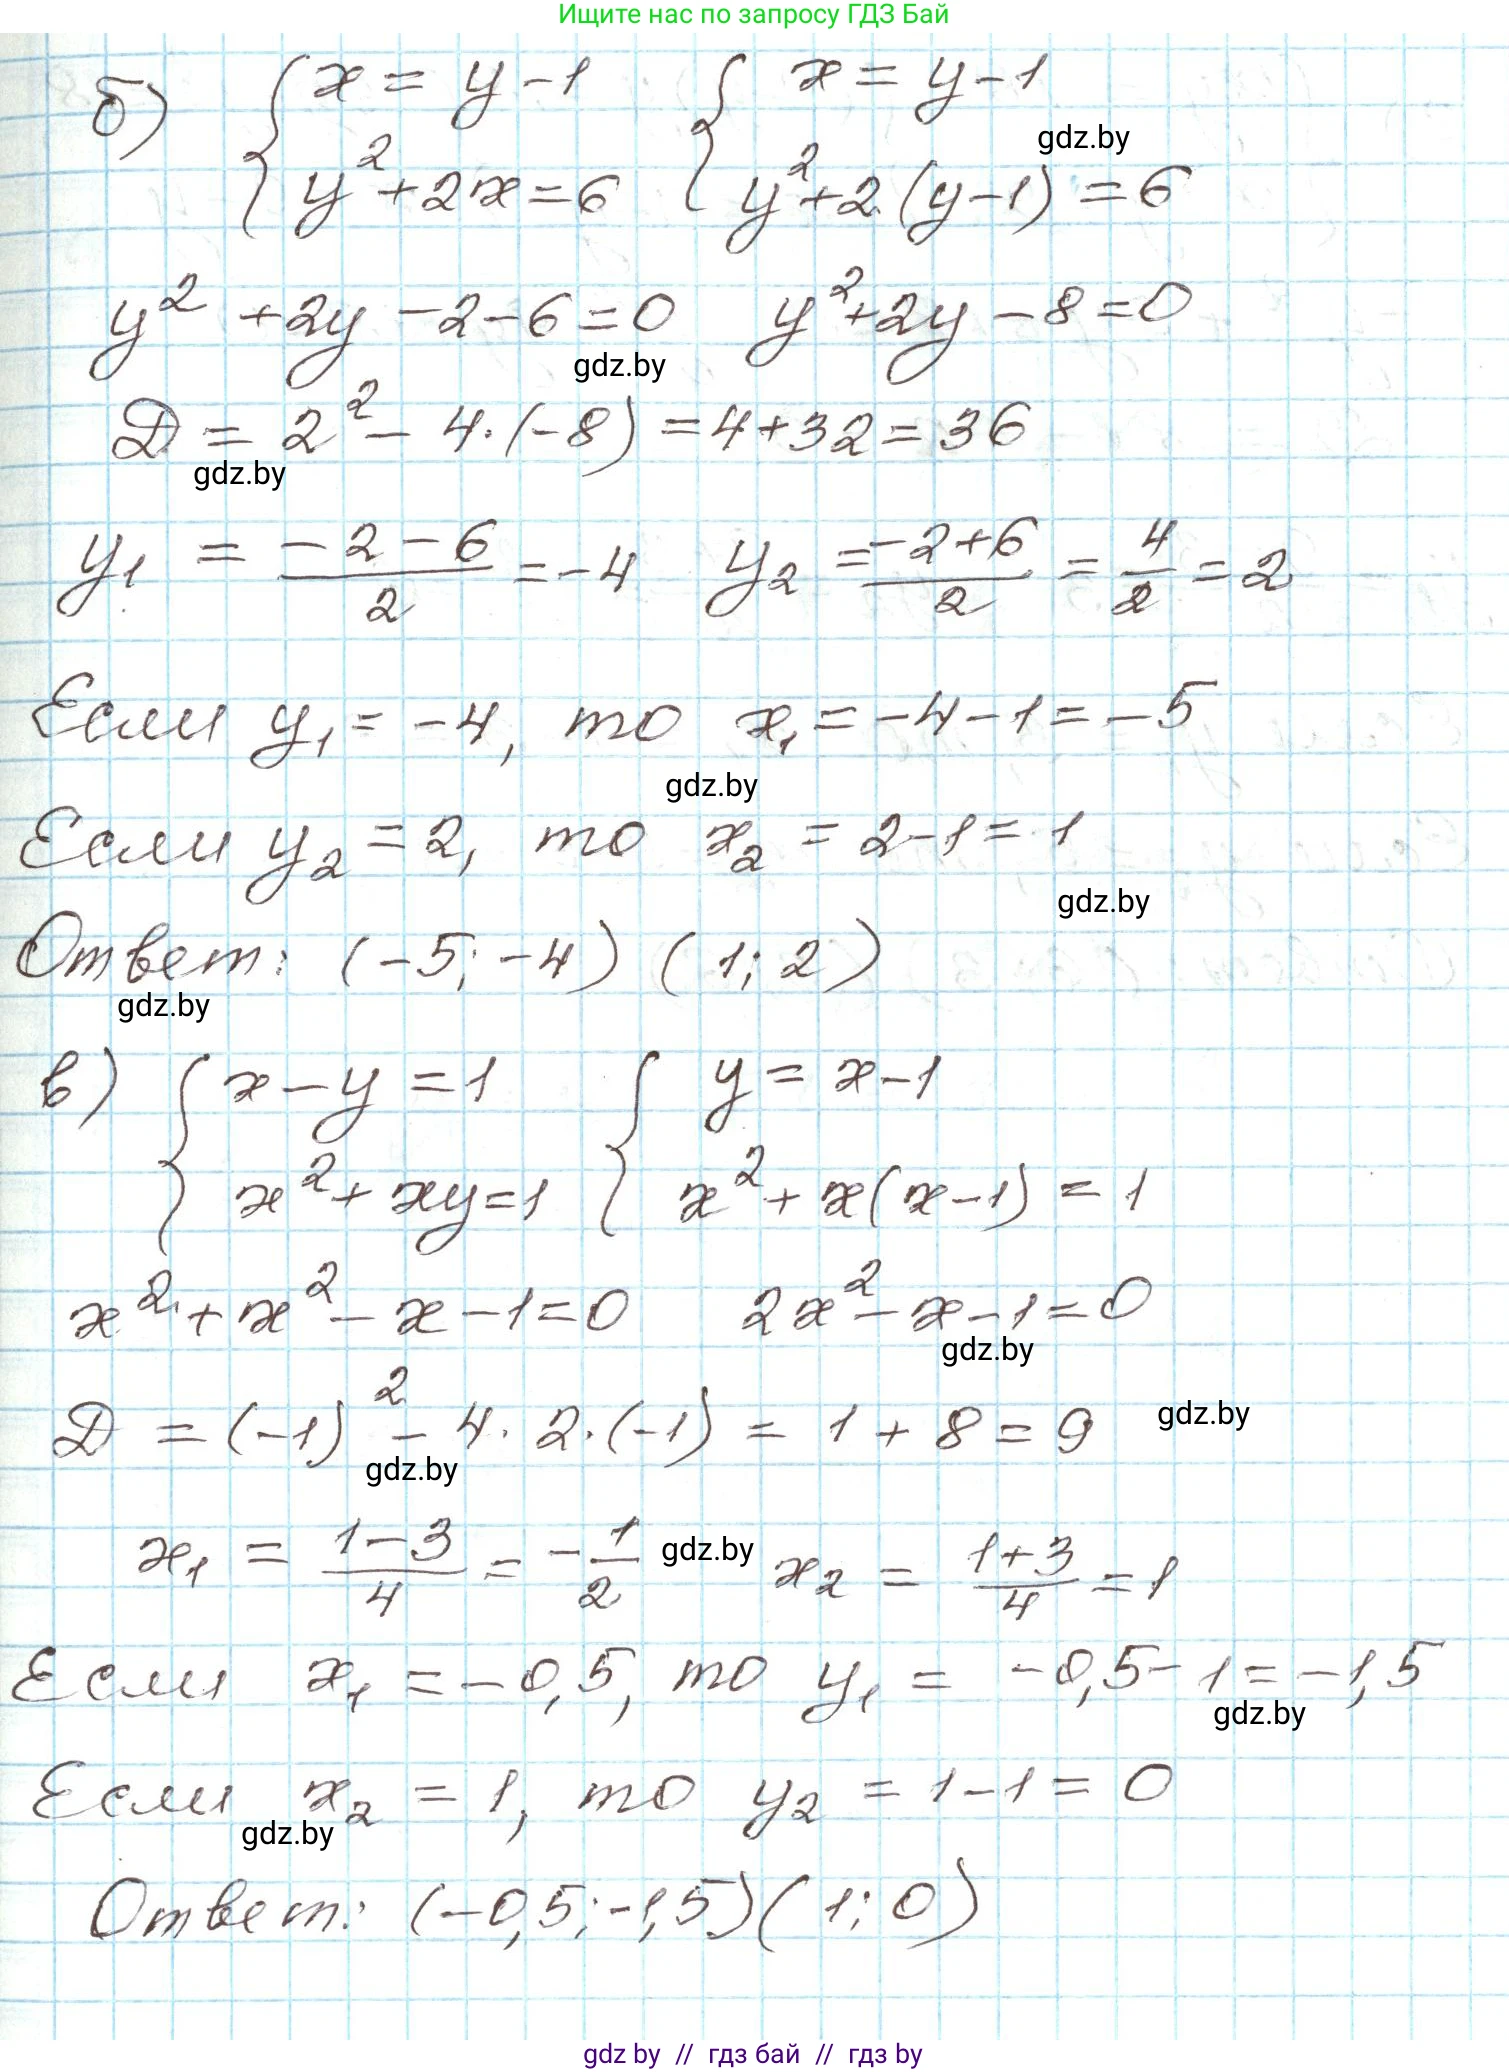 Ищите нас по запросу ГДЗ Бай
б) { x = y - 1 { x = y - 1
gdz.by
y² + 2x = 6 y² + 2·(y - 1) = 6
y² + 2y - 2 - 6 = 0 y² + 2y - 8 = 0
gdz.by
D = 2² - 4·(-8) = 4 + 32 = 36
gdz.by
y₁ = (-2 - 6)/2 = -4 y₂ = (-2 + 6)/2 = 4/2 = 2
Если y₁ = -4, то x₁ = -4 - 1 = -5
gdz.by
Если y₂ = 2, то x₂ = 2 - 1 = 1
gdz.by
Ответ: (-5; -4) (1; 2)
gdz.by
в) { x - y = 1 { y = x - 1
x² + xy = 1 x² + x(x - 1) = 1
x² + x² - x - 1 = 0 2x² - x - 1 = 0
gdz.by
D = (-1)² - 4·2·(-1) = 1 + 8 = 9 gdz.by
gdz.by
x₁ = (1 - 3)/4 = -1/2 gdz.by x₂ = (1 + 3)/4 = 1
Если x₁ = -0,5, то y₁ = -0,5 - 1 = -1,5
gdz.by
Если x₂ = 1, то y₂ = 1 - 1 = 0
gdz.by
Ответ: (-0,5; -1,5) (1; 0)
gdz by // гдз бай // гдз by